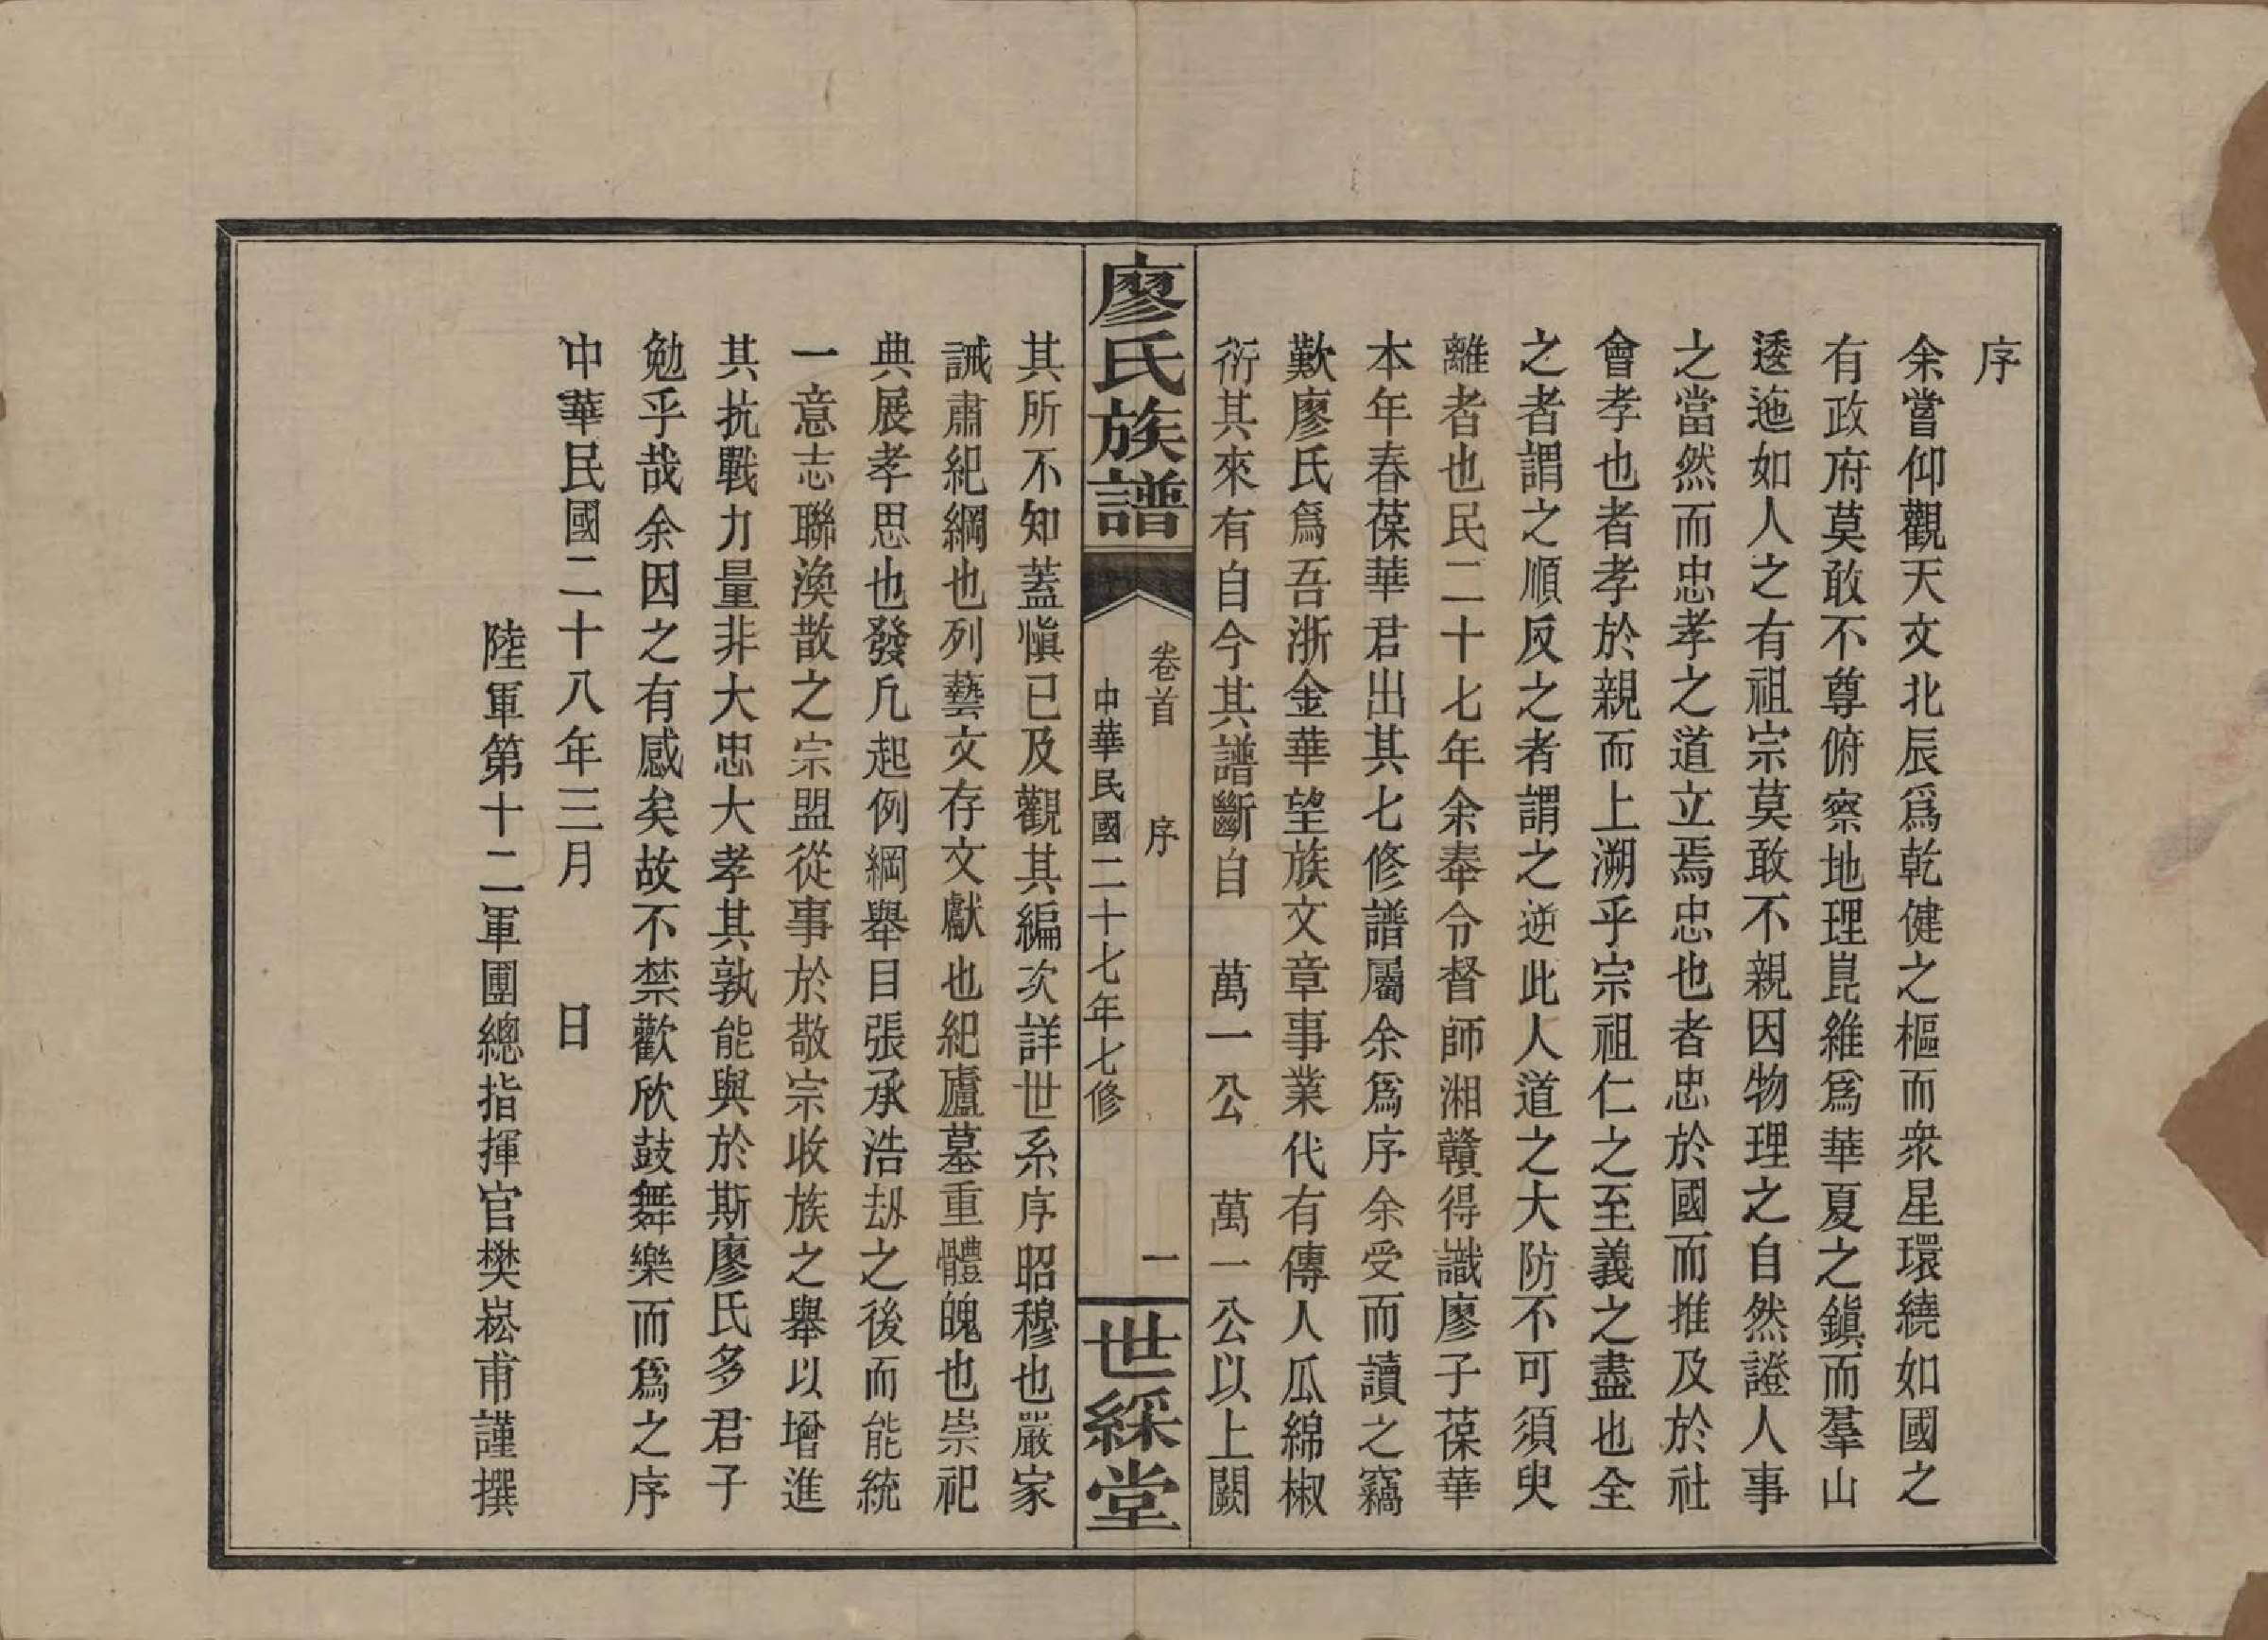 序
余嘗仰觀天文北辰爲乾健之樞而衆星環繞如國之
有政府莫敢不尊俯察地理崑維爲華夏之鎭而羣山
逶迤如人之有祖宗莫敢不親因物理之自然證人事
之當然而忠孝之道立焉忠也者忠於國而推及於社
會孝也者孝於親而上溯乎宗祖仁之至義之盡也全
之者謂之順反之者謂之逆此人道之大防不可須臾
離者也民二十七年余奉令督師湘贛得識廖子葆華
本年春葆華君出其七修譜屬余爲序余受而讀之竊
歎廖氏爲吾浙金華望族文章事業代有傳人瓜綿椒
衍其來有自今其譜斷自　萬一公　萬一公以上闕
廖氏族譜
卷首　序　一
中華民國二十七年七修
世綵堂
其所不知蓋愼已及觀其編次詳世系序昭穆也嚴家
誡肅紀綱也列藝文存文獻也紀廬墓重體魄也崇祀
典展孝思也發凡起例綱舉目張承浩刼之後而能統
一意志聯渙散之宗盟從事於敬宗收族之舉以增進
其抗戰力量非大忠大孝其孰能與於斯廖氏多君子
勉乎哉余因之有感矣故不禁歡欣鼓舞樂而爲之序
中華民國二十八年三月　日
陸軍第十二軍團總指揮官樊崧甫謹撰